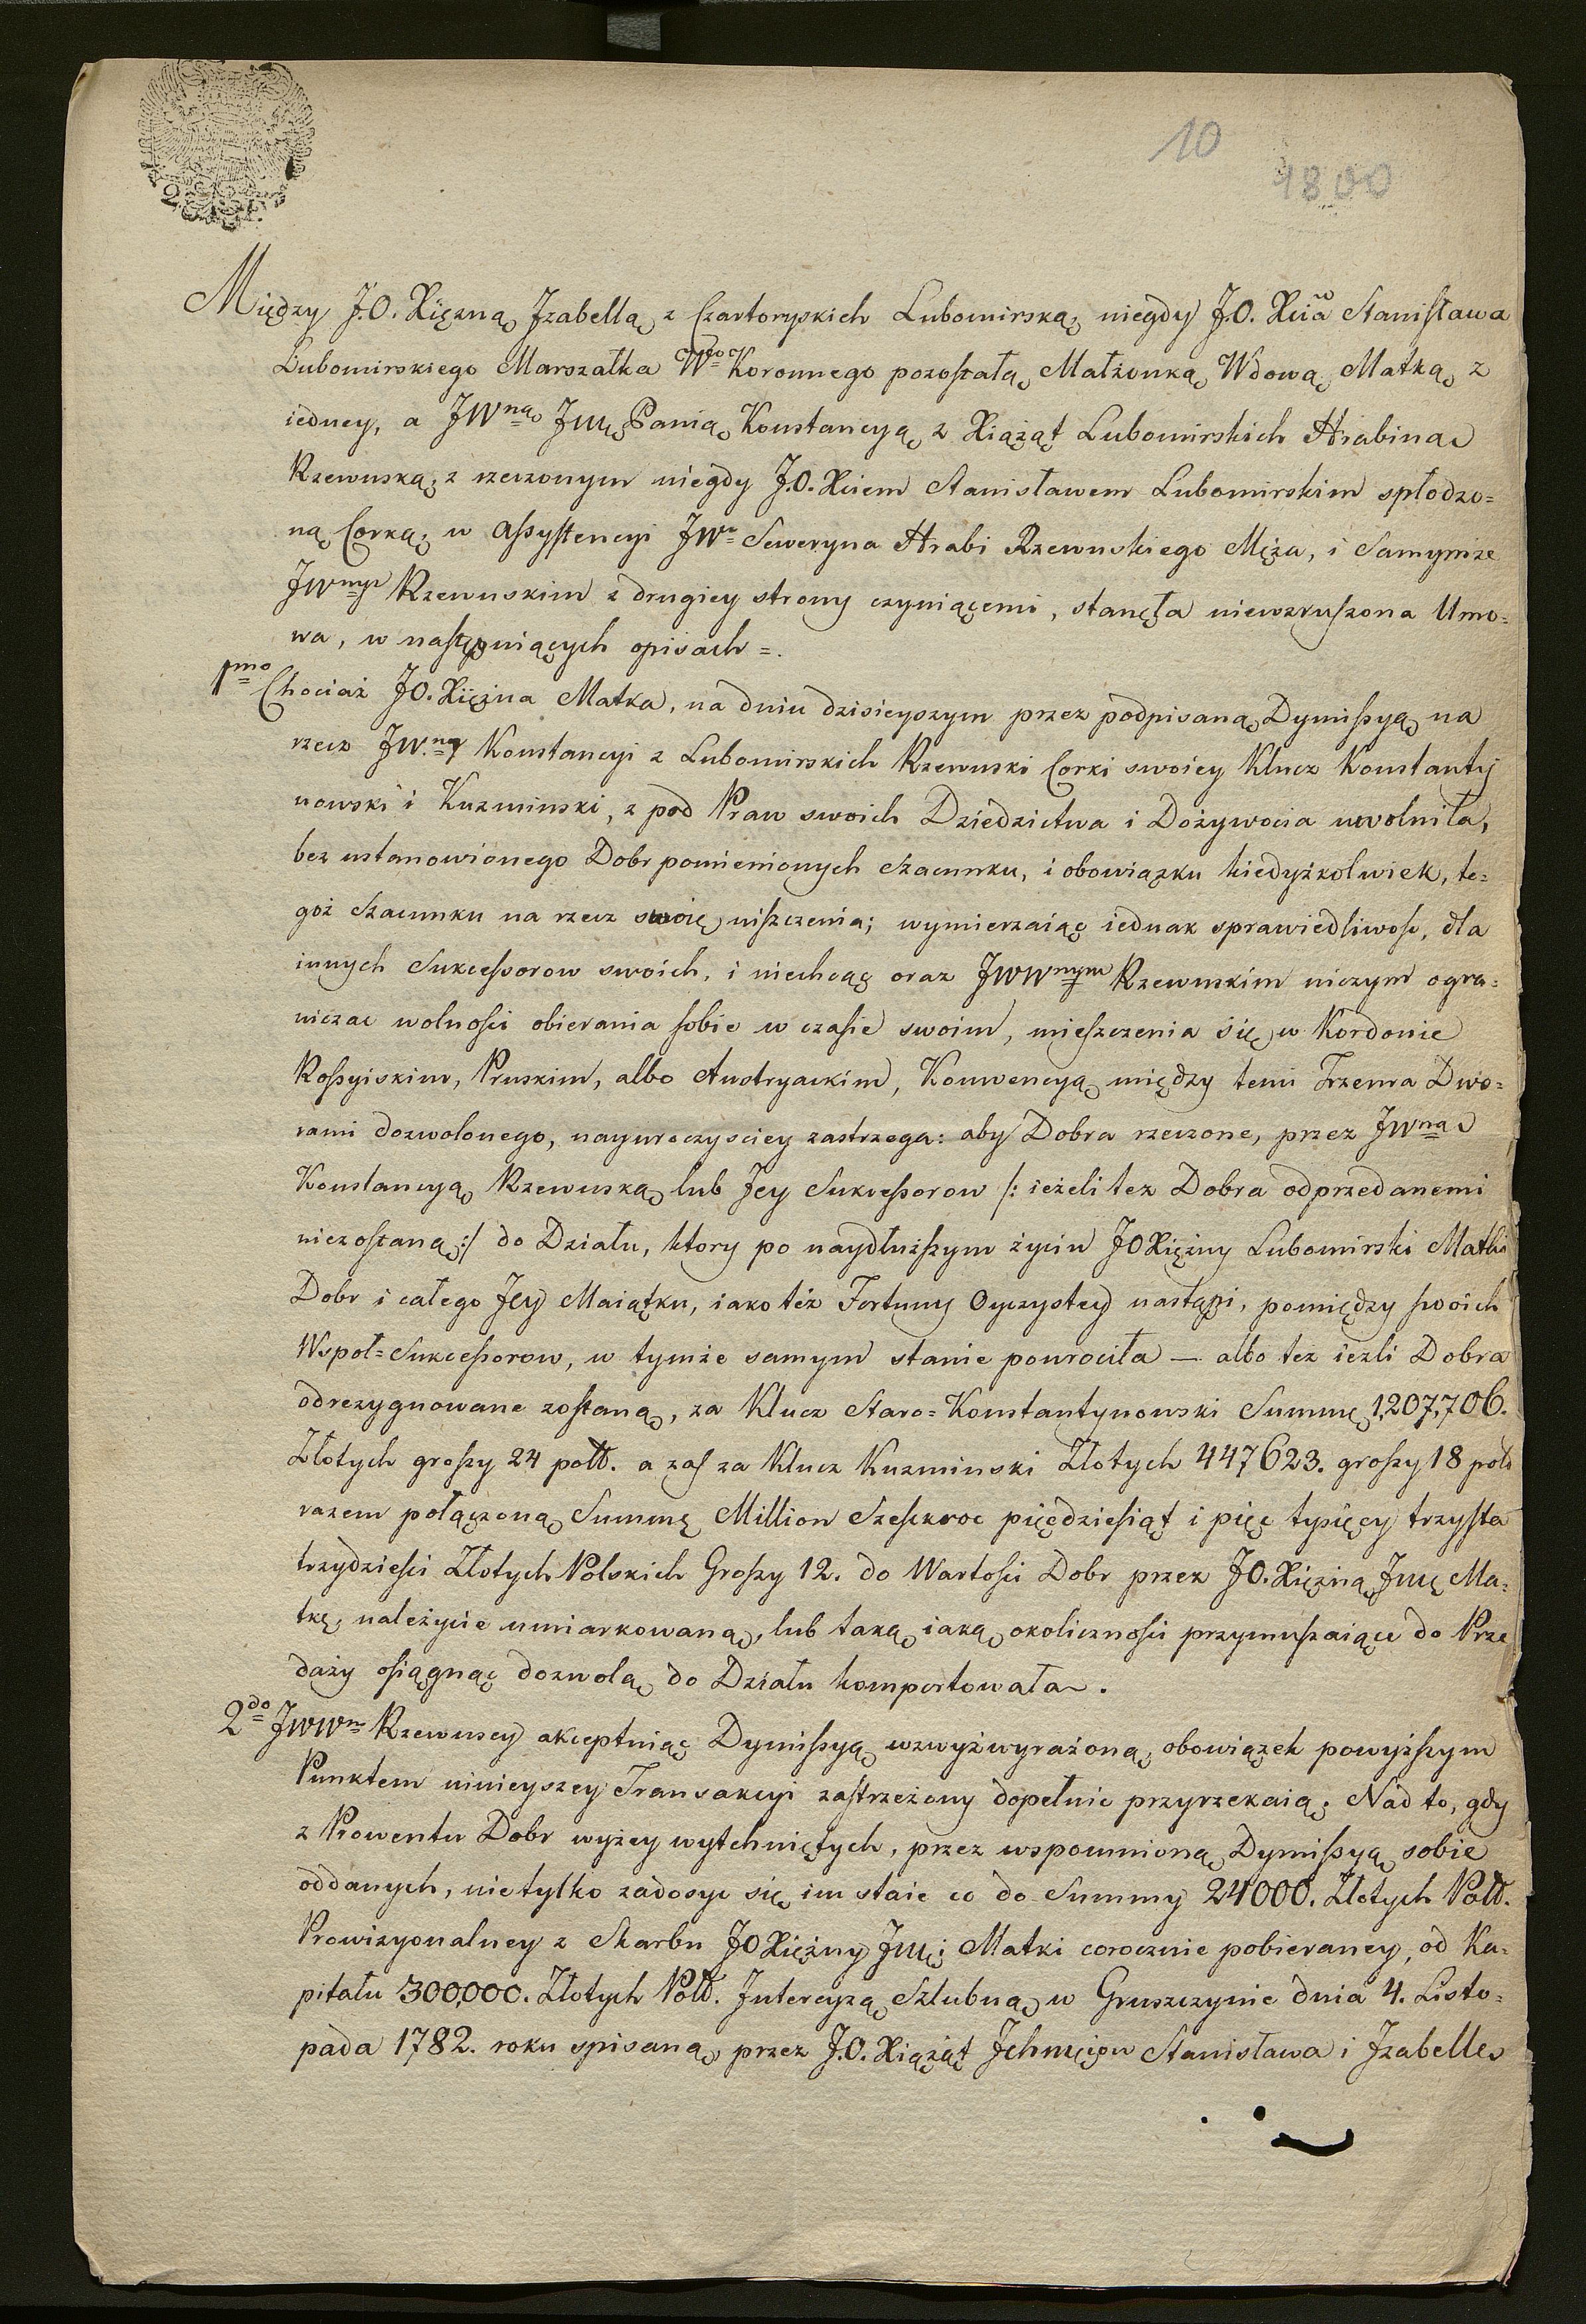 10
1800
Między J.O. Xiężną Jzabellą z Czartoryskich Lubomirską, niegdy J.O. Xcia Stanisława
Lubomirskiego Marszałka Wgo Koronnego pozostałą Małżonką Wdową Matką z
iedney, a JWną Jmę Panią Konstancyą z Xiążąt Lubomirskich Hrabiną
Rzewuską, z rzeczonym niegdy J.O. Xciem Stanisławem Lubomirskim spłodzo=
ną Corką, w Assystencyi JWo Seweryna Hrabi Rzewuskiego Męża, i Samymże
JWnym Rzewuskim z drugiey strony czyniącemi, stanęła niewzruszona Umo=
wa, w następuiących opisach =.
1mo Chociaż JO. Xiężna Matka, na dniu dzisieyszym przez podpisaną Dymissyą na
rzecz JW.ney Konstancyi z Lubomirskich Rzewuski Corki swoiey Klucz Konstanty
nowski i Kuzminski, z pod Praw swoich Dziedzictwa i Dożywocia uwolniła,
bez ustanowionego Dobr pomienionych Szacunku, i obowiązku kiedyżkolwiek, te=
goż Szacunku na rzecz swoię uiszczenia; wymierzaiąc iednak sprawiedliwość, dla
innych Sukcessorow swoich, i niechcąc oraz JWWnym Rzewuskim niczym ogra=
niczac wolności obierania sobie w czasie swoim, mieszczenia się w Kordonie
Rossyiskim, Pruskim, albo Austryackim, Konwencyą między temi Trzema Dwo=
rami dozwolonego, nayuroczysciey zastrzega: aby Dobra rzeczone, przez JWną
Konstancyą Rzewuską lub Jey Sukcessorow /: ieżeli tez Dobra odprzedanemi
niezostaną :/ do Działu, ktory po naydłuższym życiu JOXiężny Lubomirski Matki
Dobr i całego Jey Maiątku, iako też Fortuny Oyczystey nastąpi, pomiędzy swoich
Wspoł=Sukcessorow, w tymże samym stanie powrociła — albo tez iezli Dobra
odrezygnowane zostaną, za Klucz Staro=Konstantynowski Summę 1,207,706.
Złotych groszy 24 poltt. a zas za Klucz Kuzminski Złotych 447623. groszy 18 pols
razem połączoną Summę Million Szesckroc pięcdziesiąt i pięc tysięcy trzysta
trzydziesci Złotych Polskich Groszy 12. do Wartosci Dobr przez JO. Xiężną Jmę Ma=
tkę, należycie umiarkowaną, lub taką iaką okolicznosci przymuszaiące do Prze
daży osiągnąc dozwolą do Działu komportowała.
2do JWWni Rzewuscy akceptuiąc Dymissyą wzwyżwyrażoną, obowiązek powyższym
Punktem ninieyszey Transakcyi zastrzeżony dopełnic przyrzekaią; Nad to, gdy
z Prowentu Dobr wyżey wytchniętych, przez wspomnioną Dymissyą sobie
oddanych, nietylko zadosyc się im staie co do Summy 24000. Złotych Poltt.
Prowizyonalney z Skarbu JOXiężny Jmci Matki corocznie pobieraney, od Ka=
pitału 300,000. Złotych Poltt. Jntercyzą Szlubną w Gruszczynie dnia 4. Listo=
pada 1782. roku spisaną przez J.O. Xiążąt Jchmciow Stanisława i Jzabelle